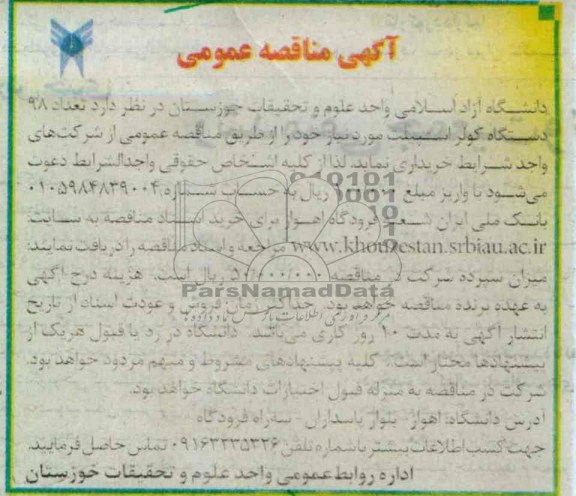 آگهی مناقصه عمومی
دانشگاه آزاد اسلامی واحد علوم و تحقیقات خوزستان در نظر دارد تعداد ۹۸
دستگاه کولر اسپیلت مورد نیاز خود را از طریق مناقصه عمومی از شرکت‌های
واجد شرایط خریداری نماید. لذا از کلیه اشخاص حقوقی واجدالشرایط دعوت
می‌شود با واریز مبلغ ریال به حساب شماره ۰۱۰۵۹۸۴۸۳۹۰۰۴
بانک ملی ایران شعبه فرودگاه اهواز برای خرید اسناد مناقصه به سایت:
www.khouzestan.srbiau.ac.ir مراجعه و اسناد مناقصه را دریافت نمایند.
میزان سپرده شرکت در مناقصه ۵۰/۰۰۰/۰۰۰ ریال است. هزینه درج آگهی
به عهده برنده مناقصه خواهد بود. حداکثر زمان فروش و عودت اسناد از تاریخ
انتشار آگهی به مدت ۱۰ روز کاری می‌باشد. دانشگاه در رد یا قبول هریک از
پیشنهادها مختار است. کلیه پیشنهادهای مشروط و مبهم مردود خواهد بود.
شرکت در مناقصه به منزله قبول اختیارات دانشگاه خواهد بود.
آدرس دانشگاه: اهواز- بلوار پاسداران- سه‌راه فرودگاه
جهت کسب اطلاعات بیشتر با شماره تلفن ۰۹۱۶۳۲۳۵۳۲۶ تماس حاصل فرمایند.
اداره روابط عمومی واحد علوم و تحقیقات خوزستان
ParsNamadData